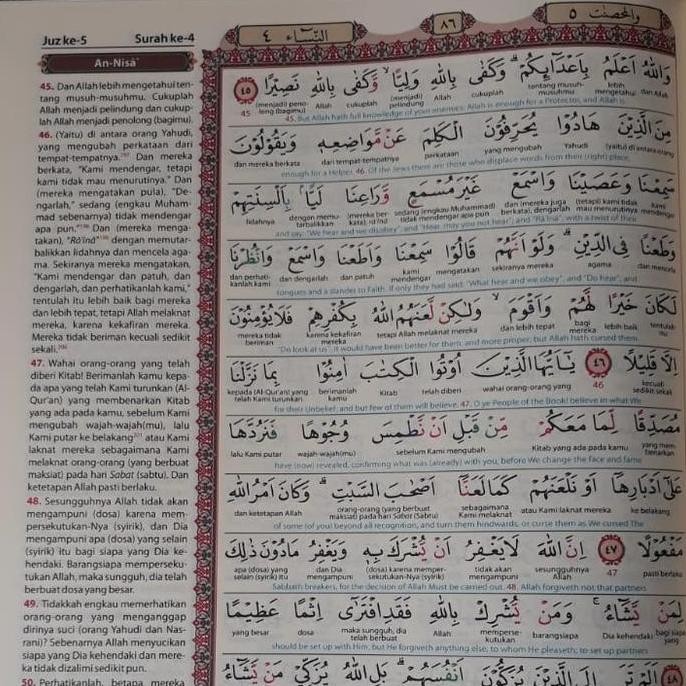 Juz ke-5
Surah ke-4
An-Nisā'
النساء ٤
٨٦
والمحصنت ٥
45. Dan Allah lebih mengetahui ten-
tang musuh-musuhmu. Cukuplah
Allah menjadi pelindung dan cukup-
lah Allah menjadi penolong (bagimu).
46. (Yaitu) di antara orang Yahudi,
yang mengubah perkataan dari
tempat-tempatnya. Dan mereka
berkata, "Kami mendengar, tetapi
kami tidak mau menurutinya." Dan
(mereka mengatakan pula), "De-
ngarlah," sedang (engkau Muham-
mad sebenarnya) tidak mendengar
apa pun. Dan (mereka menga-
takan), "Rā'inā" dengan memutar-
balikkan lidahnya dan mencela aga-
ma. Sekiranya mereka mengatakan,
"Kami mendengar dan patuh, dan
dengarlah, dan perhatikanlah kami,"
tentulah itu lebih baik bagi mereka
dan lebih tepat, tetapi Allah melaknat
mereka, karena kekafiran mereka.
Mereka tidak beriman kecuali sedikit
sekali.
47. Wahai orang-orang yang telah
diberi Kitab! Berimanlah kamu kepa-
da apa yang telah Kami turunkan (Al-
Qur'an) yang membenarkan Kitab
yang ada pada kamu, sebelum Kami
mengubah wajah-wajah(mu), lalu
Kami putar ke belakang atau Kami
laknat mereka sebagaimana Kami
melaknat orang-orang (yang berbuat
maksiat) pada hari Sabat (Sabtu). Dan
ketetapan Allah pasti berlaku.
48. Sesungguhnya Allah tidak akan
mengampuni (dosa) karena mem-
persekutukan-Nya (syirik), dan Dia
mengampuni apa (dosa) yang selain
(syirik) itu bagi siapa yang Dia ke-
hendaki. Barangsiapa mempersekutu-
kan Allah, maka sungguh, dia telah
berbuat dosa yang besar.
49. Tidakkah engkau memerhatikan
orang-orang yang menganggap
dirinya suci (orang Yahudi dan Nas-
rani)? Sebenarnya Allah menyucikan
siapa yang Dia kehendaki dan mere-
ka tidak dizalimi sedikit pun.
50. Perhatikanlah, betapa mereka
وَاللّٰهُ اَعْلَمُ بِاَعْدَاۤىِٕكُمْ ۗوَكَفٰى بِاللّٰهِ وَلِيًّا ۙوَّكَفٰى بِاللّٰهِ نَصِيْرًا ٤٥
dan Allah lebih mengetahui tentang musuh-musuhmu cukuplah Allah (menjadi) pelindung cukuplah Allah (menjadi) peno-long (bagimu) 45
45. But Allah hath full knowledge of your enemies: Allah is enough for a Protector, and Allah is
مِنَ الَّذِيْنَ هَادُوْا يُحَرِّفُوْنَ الْكَلِمَ عَنْ مَّوَاضِعِهٖ وَيَقُوْلُوْنَ
(yaitu) di antara orang Yahudi yang mengubah perkataan dari tempat-tempatnya dan mereka berkata
enough for a Helper. 46. Of the Jews there are those who displace words from their (right) place,
سَمِعْنَا وَعَصَيْنَا وَاسْمَعْ غَيْرَ مُسْمَعٍ وَّرَاعِنَا لَيًّاۢ بِاَلْسِنَتِهِمْ
kami mendengar (tetapi) kami tidak mau menurutinya dan (mereka juga berkata), dengarlah sedang (engkau Muhammad) tidak mendengar apa pun (mereka ber-kata), rā'inā dengan memu-tarbalikkan lidahnya
and say: "We hear and we disobey"; and "Hear, may you not hear"; and "Rā'inā"; with a twist of their
وَطَعْنًا فِى الدِّيْنِۗ وَلَوْ اَنَّهُمْ قَالُوْا سَمِعْنَا وَاَطَعْنَا وَاسْمَعْ وَانْظُرْنَا
dan mencela agama sekiranya mereka mengatakan kami mendengar dan patuh dan dengarlah dan perhati-kanlah kami
tongues and a slander to Faith. If only they had said: "What hear and we obey"; and "Do hear"; and
لَكَانَ خَيْرًا لَّهُمْ وَاَقْوَمَۙ وَلٰكِنْ لَّعَنَهُمُ اللّٰهُ بِكُفْرِهِمْ فَلَا يُؤْمِنُوْنَ
tentulah itu lebih baik bagi mereka dan lebih tepat tetapi Allah melaknat mereka karena kekafiran mereka mereka tidak beriman
"Do look at us"; it would have been better for them, and more proper; but Allah hath cursed them
اِلَّا قَلِيْلًا ٤٦ يٰٓاَيُّهَا الَّذِيْنَ اُوْتُوا الْكِتٰبَ اٰمِنُوْا بِمَا نَزَّلْنَا
kecuali sedikit sekali 46 wahai orang-orang yang telah diberi Kitab berimanlah kamu kepada (Al-Qur'an) yang telah Kami turunkan
for their Unbelief; and but few of them will believe. 47. O ye People of the Book! believe in what We
مُصَدِّقًا لِّمَا مَعَكُمْ مِّنْ قَبْلِ اَنْ نَّطْمِسَ وُجُوْهًا فَنَرُدَّهَا
yang mem-benarkan Kitab yang ada pada kamu sebelum Kami mengubah wajah-wajah(mu) lalu Kami putar
have (now) revealed, confirming what was (already) with you, before We change the face and fame
عَلٰٓى اَدْبَارِهَآ اَوْ نَلْعَنَهُمْ كَمَا لَعَنَّآ اَصْحٰبَ السَّبْتِۗ وَكَانَ اَمْرُ اللّٰهِ
ke belakang atau Kami laknat mereka sebagaimana Kami melaknat orang-orang (yang berbuat maksiat) pada hari Sabat (Sabtu) dan ketetapan Allah
of some (of you) beyond all recognition, and turn them hindwards, or curse them as We cursed The
مَفْعُوْلًا ٤٧ اِنَّ اللّٰهَ لَا يَغْفِرُ اَنْ يُّشْرَكَ بِهٖ وَيَغْفِرُ مَا دُوْنَ ذٰلِكَ
pasti berlaku 47 sesungguhnya Allah tidak akan mengampuni (dosa) karena memper-sekutukan-Nya (syirik) dan Dia mengampuni apa (dosa) yang selain (syirik) itu
Sabbath breakers, for the decision of Allah Must be carried out. 48. Allah forgiveth not that partners
لِمَنْ يَّشَاۤءُ ۚوَمَنْ يُّشْرِكْ بِاللّٰهِ فَقَدِ افْتَرٰٓى اِثْمًا عَظِيْمًا
bagi siapa yang Dia kehendaki barangsiapa memperse-kutukan Allah maka sungguh, dia telah berbuat dosa yang besar
should be set up with Him; but He forgiveth anything else, to whom He pleaseth; to set up partners
٤٨ اَلَمْ تَرَ اِلَى الَّذِيْنَ يُزَكُّوْنَ اَنْفُسَهُمْ ۗبَلِ اللّٰهُ يُزَكِّيْ مَنْ يَّشَاۤءُ